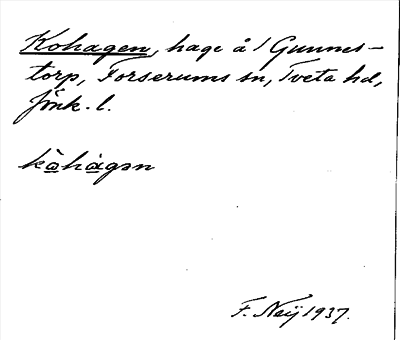 Kohagen, hage å Gunnes-
torp, Forserums sn, Tveta hd,
Jönk. l.
kòhàgən
F. Neij 1937.